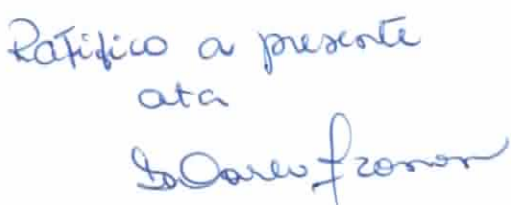 Ratifico a presente
ata